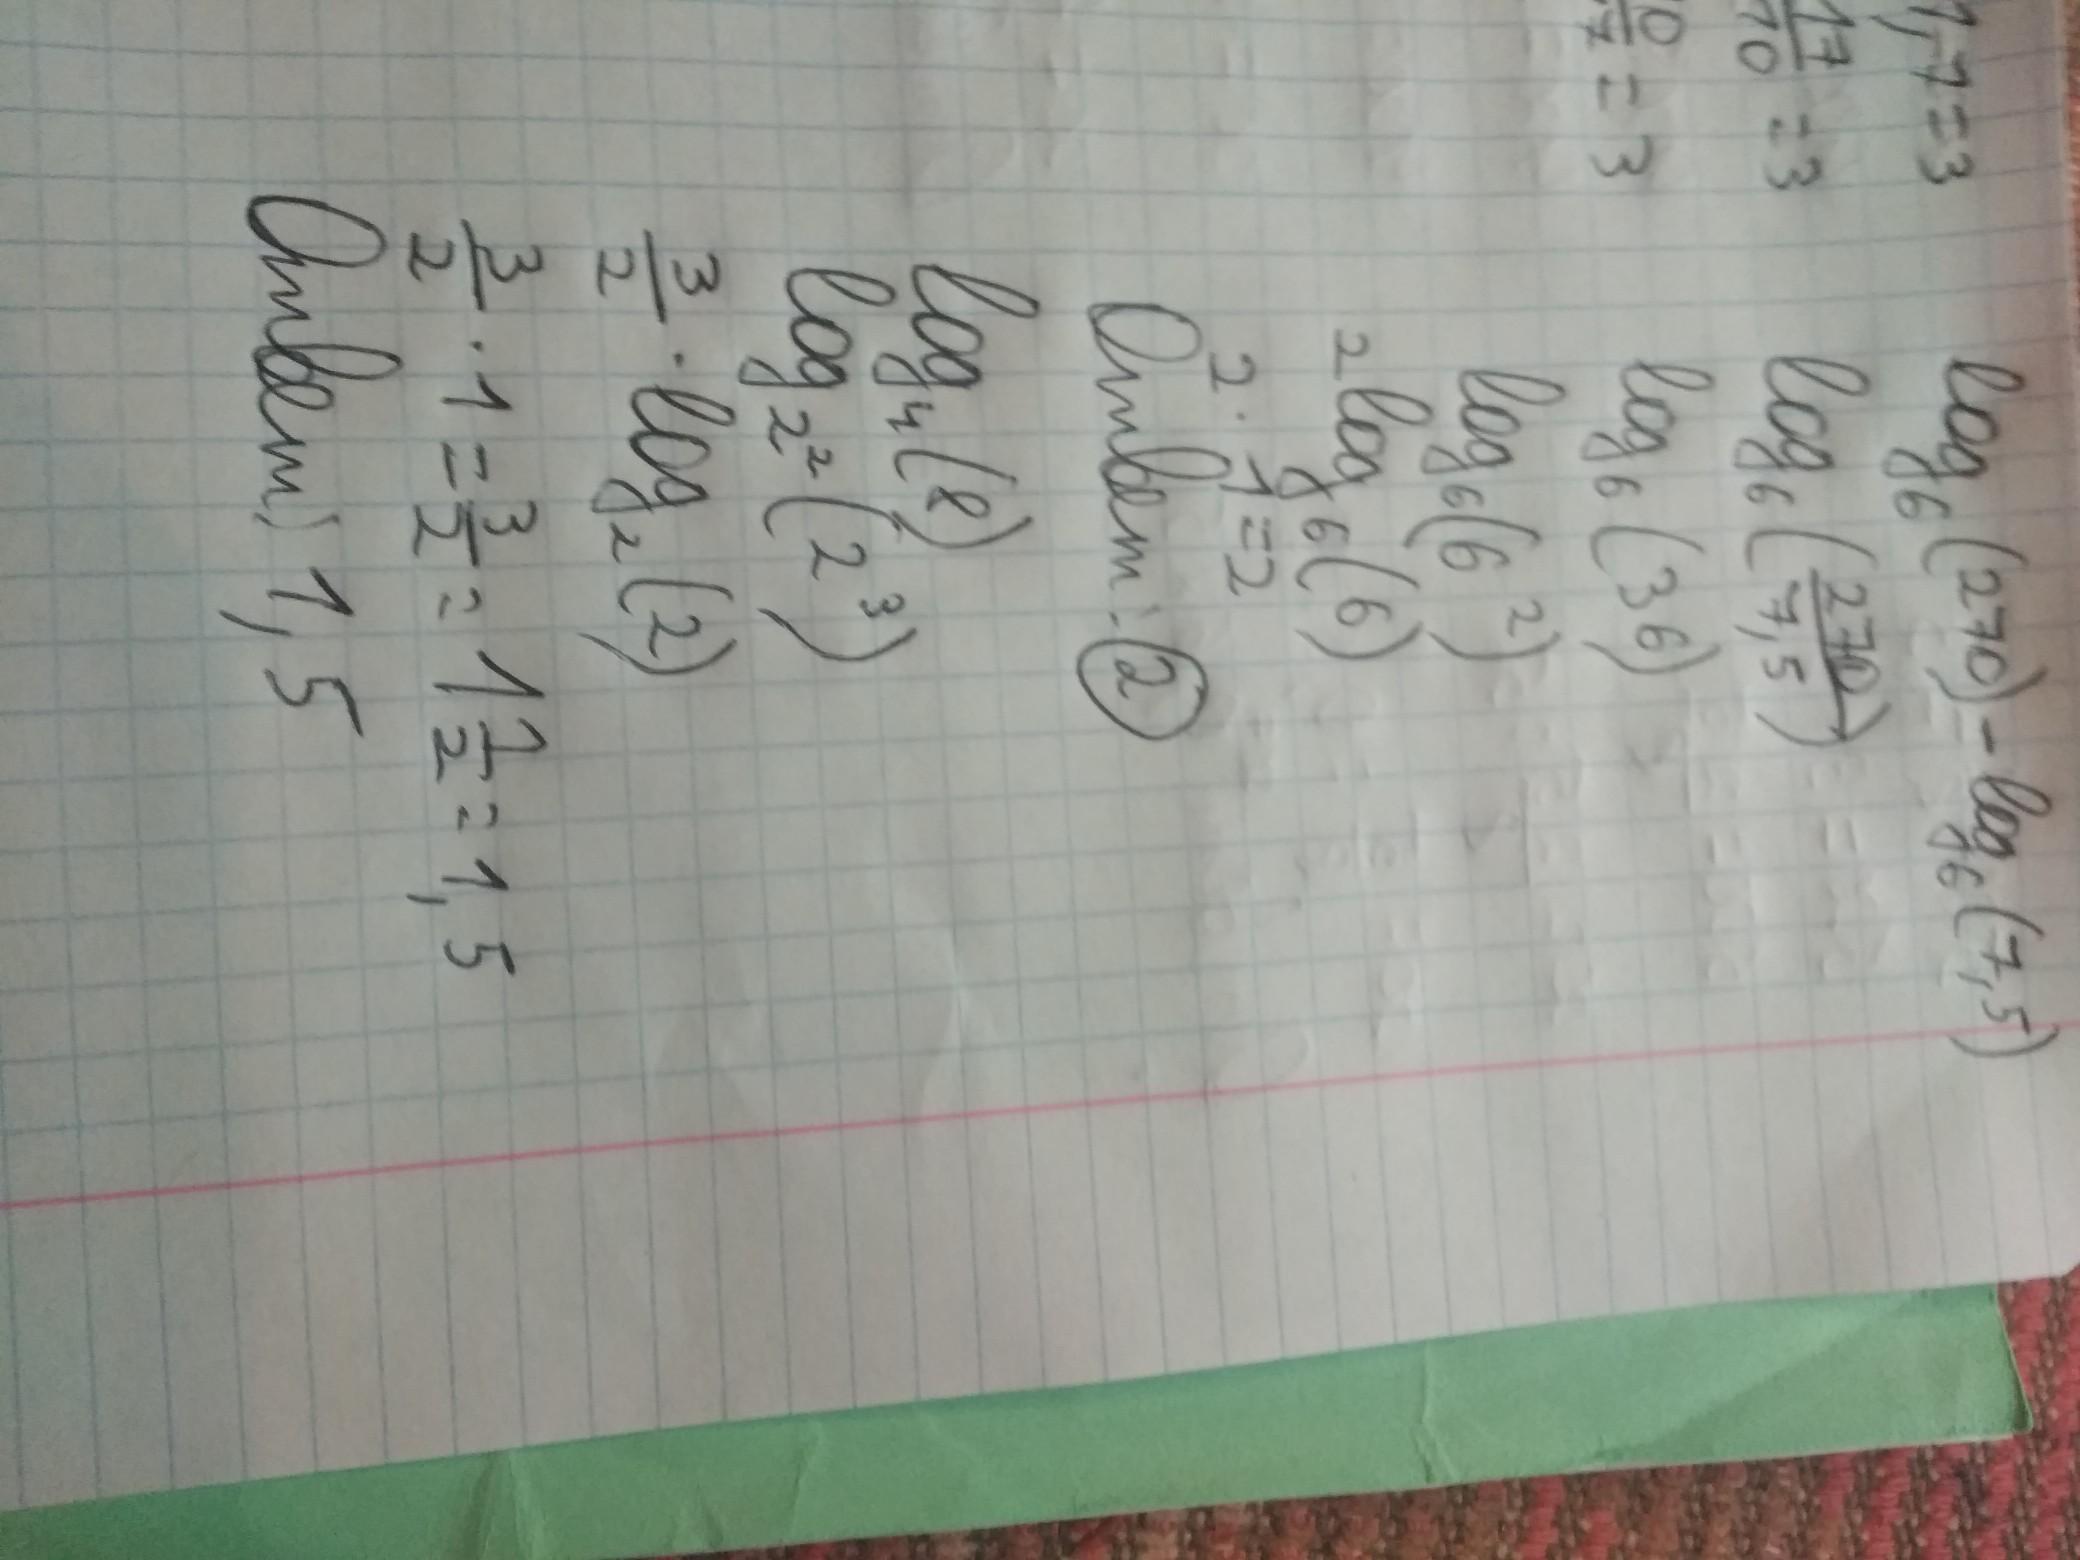 1,7=3
17/10=3
10/7=3
log₆(270)-log₆(7,5)
log₆(270/7,5)
log₆(36)
log₆(6²)
2log₆(6)
2·1=2
Ответ: 2
log₄(8)
log₂²(2³)
3/2·log₂(2)
3/2·1=3/2=1 1/2=1,5
Ответ: 1,5